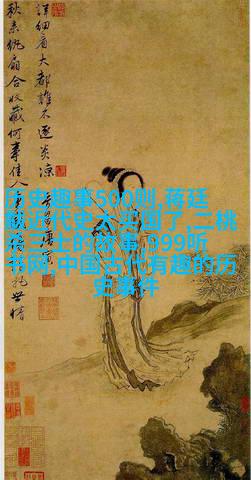 秋来紈扇合收藏何事佳人
世情
詳細看大都誰不逐炎凉
历史趣事500则,蒋廷
黻近代史太卖国了,二桃
杀三士的故事,999听
书网,中国古代有趣的历
史事件